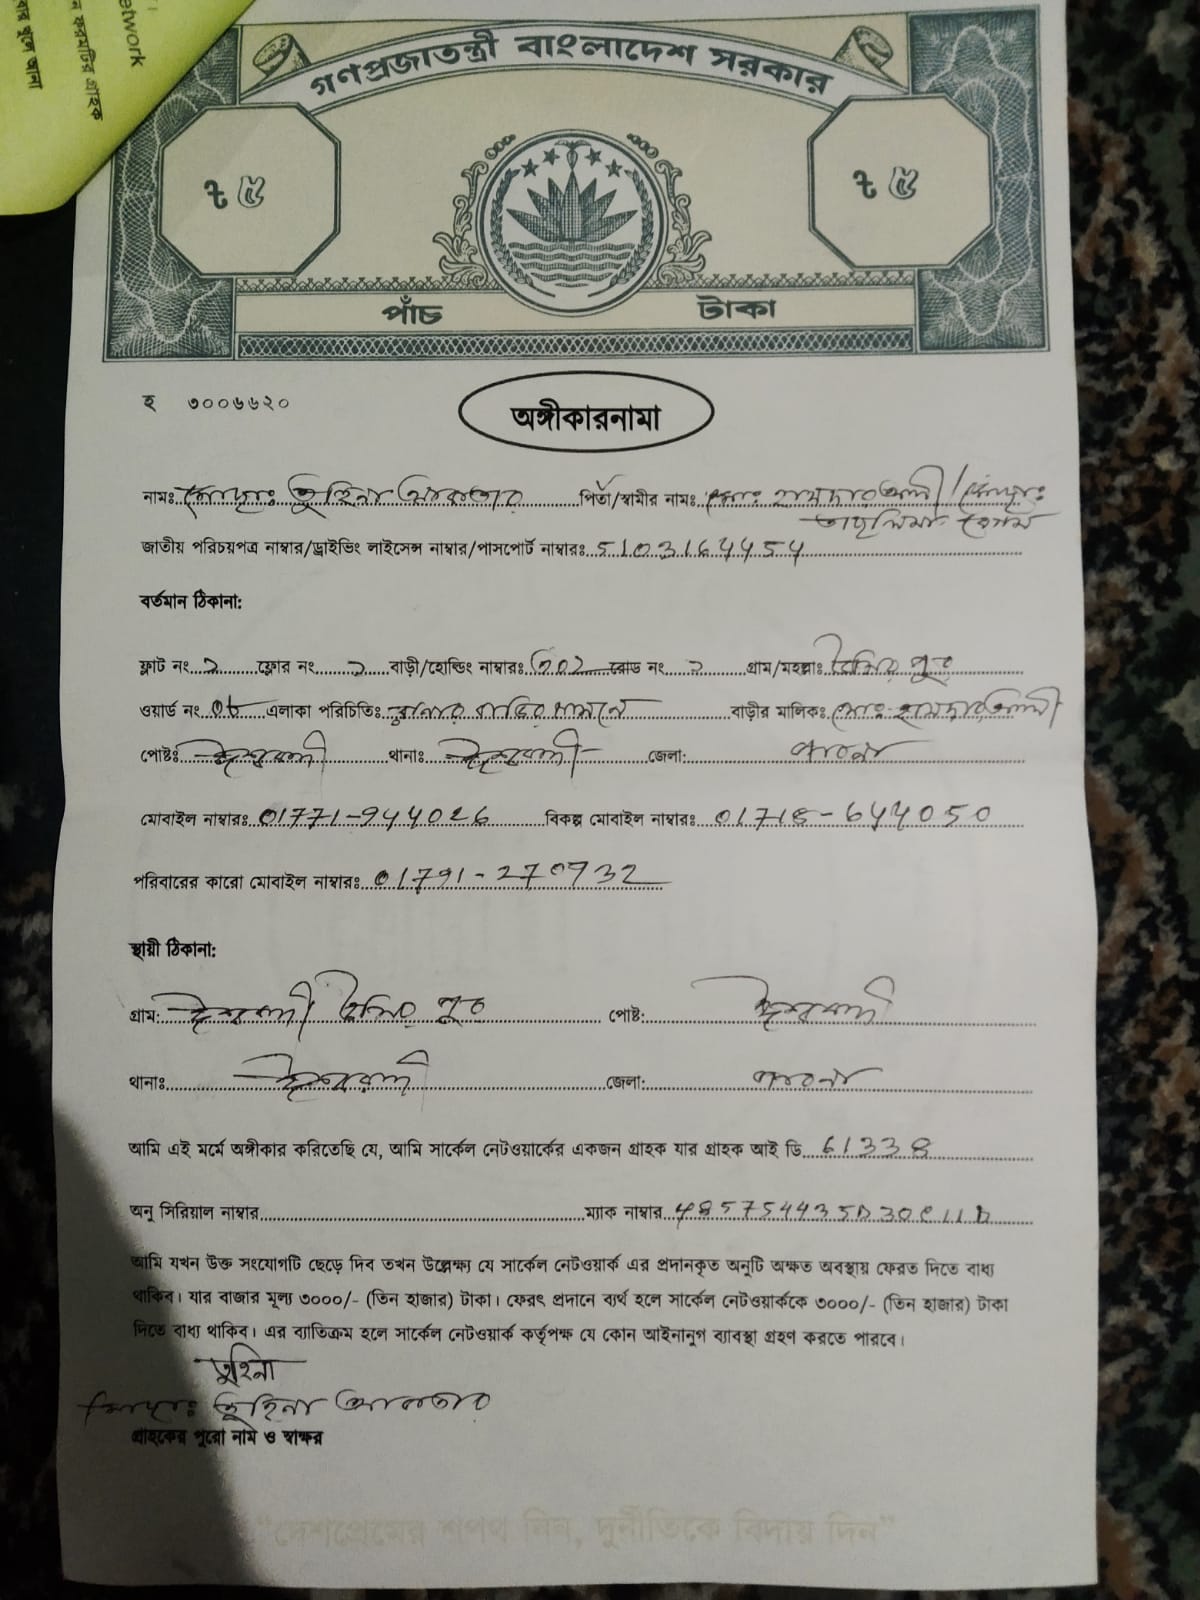 etwork
গণপ্রজাতন্ত্রী বাংলাদেশ সরকার
৳ ৫ ৳ ৫
পাঁচ টাকা
হ ৩০০৬৬২০
অঙ্গীকারনামা
নামঃ মোছাঃ তুহিনা আকতার পিতা/স্বামীর নামঃ মোঃ হায়দার আলী / মোছাঃ
তাছলিমা বেগম
জাতীয় পরিচয়পত্র নাম্বার/ড্রাইভিং লাইসেন্স নাম্বার/পাসপোর্ট নাম্বারঃ 5103164454
বর্তমান ঠিকানা:
ফ্লাট নং ২ ফ্লোর নং ২ বাড়ী/হোল্ডিং নাম্বারঃ রোড নং ২ গ্রাম/মহল্লাঃ
ওয়ার্ড নং ০৮ এলাকা পরিচিতিঃ বাড়ির সামনে বাড়ীর মালিকঃ মোঃ হায়দার আলী
পোষ্টঃ ঈশ্বরদী থানাঃ ঈশ্বরদী জেলা: পাবনা
মোবাইল নাম্বারঃ 01771-944026 বিকল্প মোবাইল নাম্বারঃ 01718-644050
পরিবারের কারো মোবাইল নাম্বারঃ 01791-270732
স্থায়ী ঠিকানা:
গ্রাম: ঈশ্বরদী পোষ্ট: ঈশ্বরদী
থানাঃ ঈশ্বরদী জেলা: পাবনা
আমি এই মর্মে অঙ্গীকার করিতেছি যে, আমি সার্কেল নেটওয়ার্কের একজন গ্রাহক যার গ্রাহক আই ডি 61338
অনু সিরিয়াল নাম্বার ম্যাক নাম্বার 485754435D30C11D
আমি যখন উক্ত সংযোগটি ছেড়ে দিব তখন উল্লেক্ষ্য যে সার্কেল নেটওয়ার্ক এর প্রদানকৃত অনুটি অক্ষত অবস্থায় ফেরত দিতে বাধ্য
থাকিব। যার বাজার মূল্য ৩০০০/- (তিন হাজার) টাকা। ফেরৎ প্রদানে ব্যর্থ হলে সার্কেল নেটওয়ার্ককে ৩০০০/- (তিন হাজার) টাকা
দিতে বাধ্য থাকিব। এর ব্যাতিক্রম হলে সার্কেল নেটওয়ার্ক কর্তৃপক্ষ যে কোন আইনানুগ ব্যাবস্থা গ্রহণ করতে পারবে।
তুহিনা
মোছাঃ তুহিনা আকতার
গ্রাহকের পুরো নাম ও স্বাক্ষর
"দেশপ্রেমের শপথ নিন, দুর্নীতিকে বিদায় দিন"